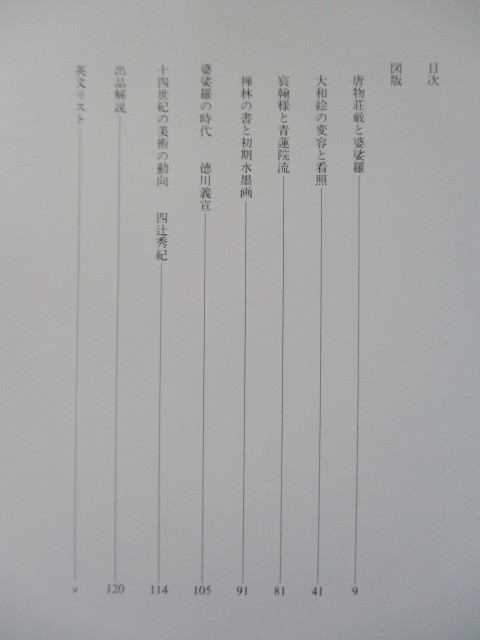 目次
図版
唐物荘厳と婆娑羅 9
大和絵の変容と看照 41
宸翰様と青蓮院流 81
禅林の書と初期水墨画 91
婆娑羅の時代 徳川義宣 105
十四世紀の美術の動向 四辻秀紀 114
出品解説 120
英文リスト v